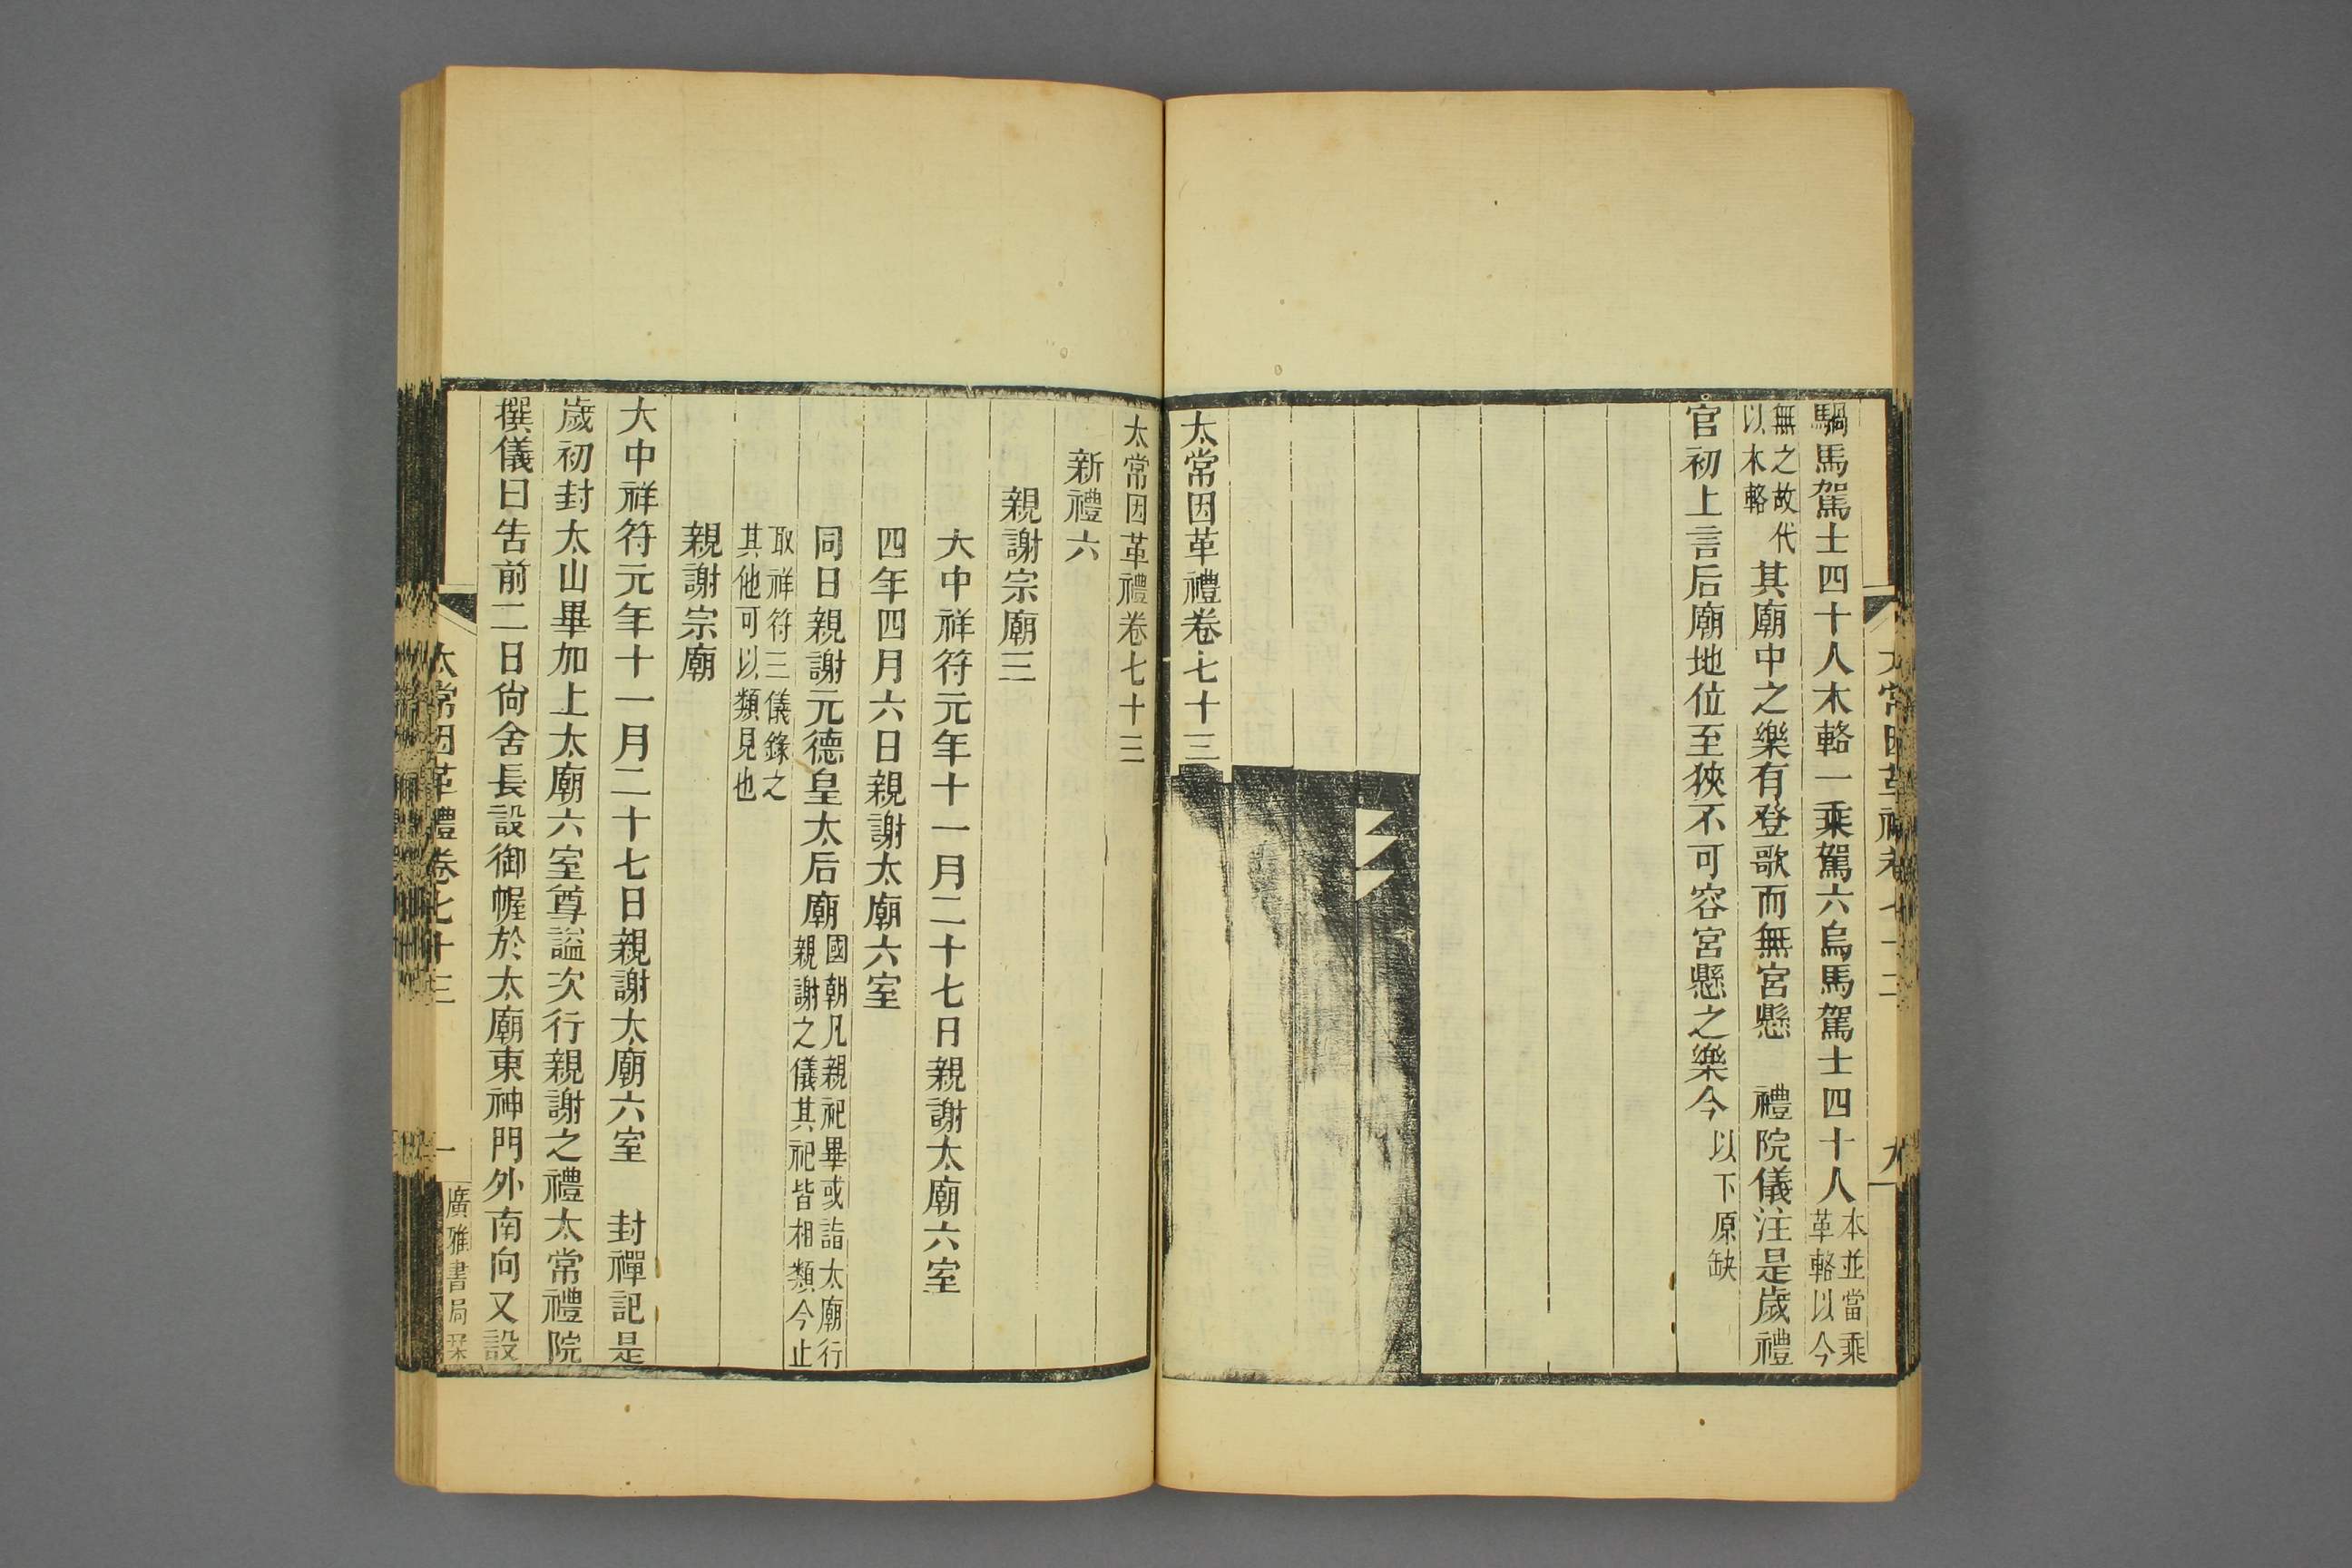 騧馬駕士四十人木輅一乘駕六烏馬駕士四十人本並當乘革輅以今
無之故代以木輅其廟中之樂有登歌而無宮懸　禮院儀注是歲禮
官初上言后廟地位至狹不可容宮懸之樂今以下原缺
太常因革禮卷七十三
太常因革禮卷七十三
新禮六
親謝宗廟三
大中祥符元年十一月二十七日親謝太廟六室
四年四月六日親謝太廟六室
同日親謝元德皇太后廟國朝凡親祀畢或詣太廟行親謝之儀其祀皆相類今止
取祥符三儀錄之其他可以類見也
親謝宗廟
大中祥符元年十一月二十七日親謝太廟六室　封禪記是
歲初封太山畢加上太廟六室尊諡次行親謝之禮太常禮院
撰儀曰告前二日尙舍長設御幄於太廟東神門外南向又設
太常因革禮卷七十三
一
廣雅書局栞